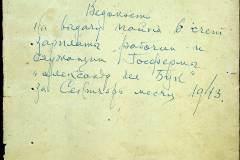 Ведомость
на выдачу пайка в счет
зарплаты рабочим и
служащим Госфермы
"Александ
за Сентябрь месяц 19 3.